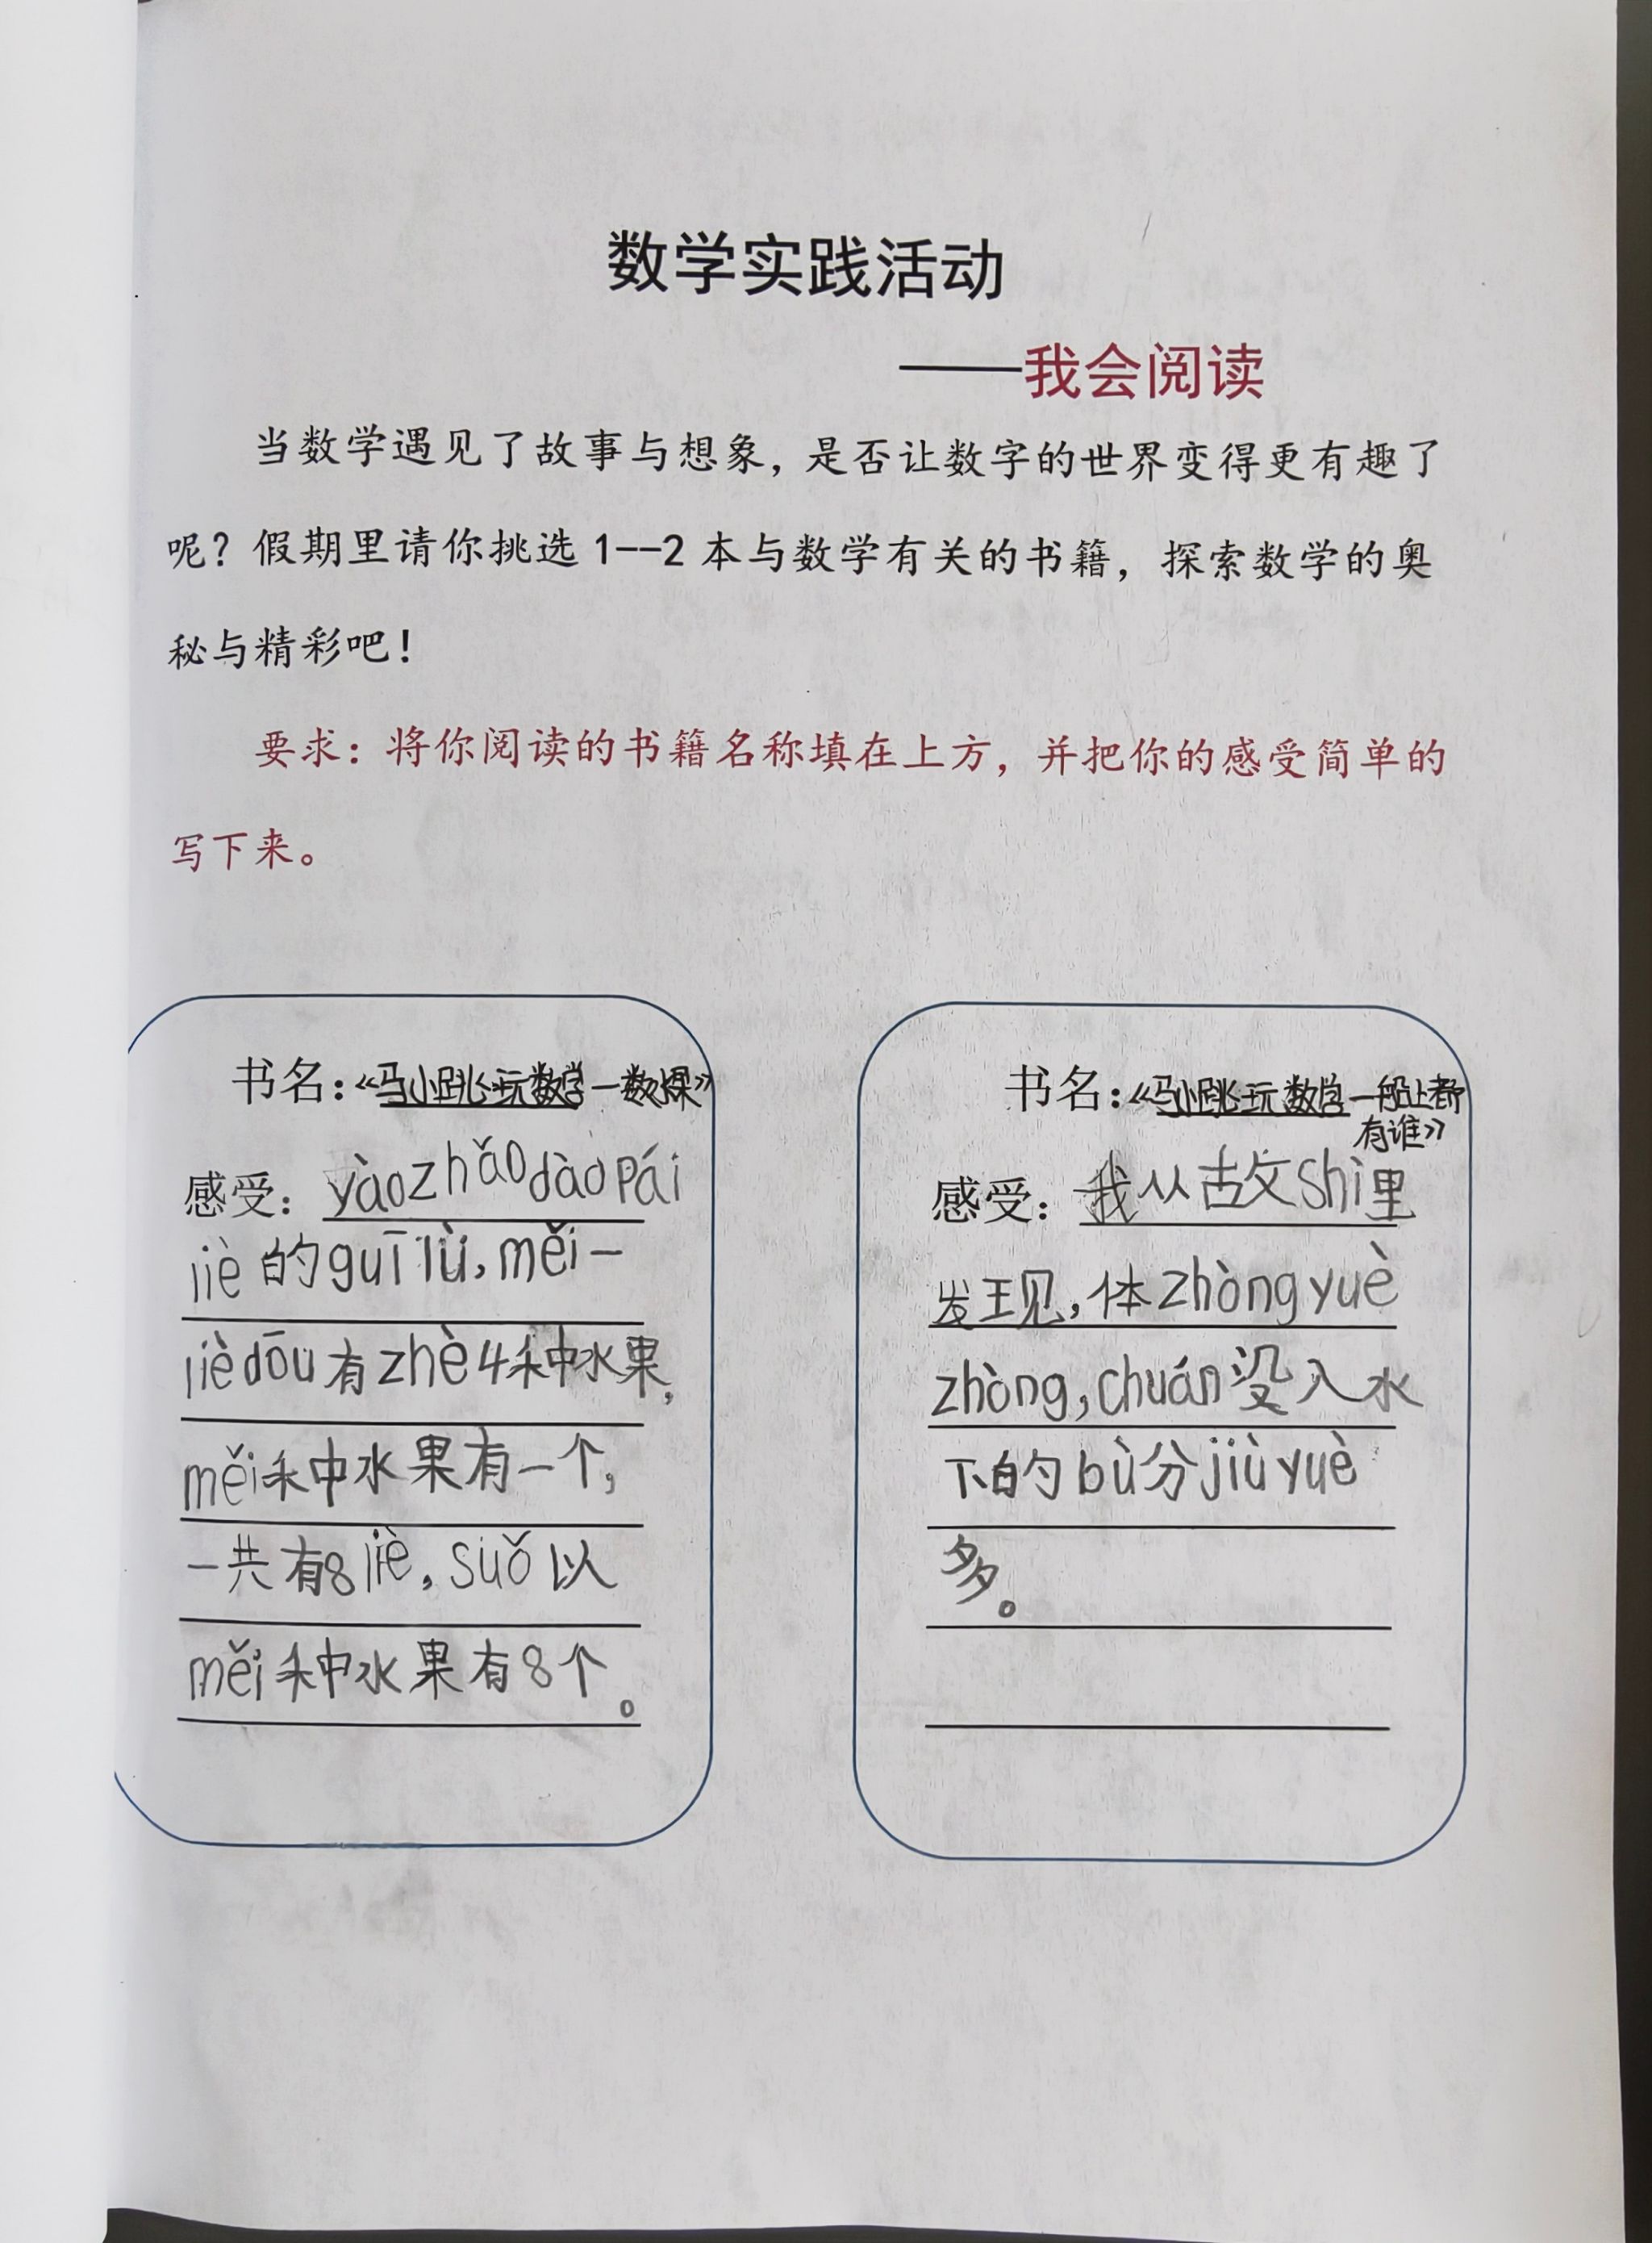 数学实践活动
——我会阅读
当数学遇见了故事与想象，是否让数字的世界变得更有趣了
呢？假期里请你挑选 1--2 本与数学有关的书籍，探索数学的奥
秘与精彩吧！
要求：将你阅读的书籍名称填在上方，并把你的感受简单的
写下来。
书名：《马小跳玩数学—数水果》
感受：yào zhǎo dào pái
liè 的 guī lǜ，měi 一
liè dōu 有 zhè 4 种水果，
měi 种水果有一个，
一共有8 liè，suǒ 以
měi 种水果有8个。
书名：《马小跳玩数学—船上都
有谁》
感受：我从故 shì 里
发现，体 zhòng yuè
zhòng，chuán 没入水
下的 bù 分 jiù yuè
多。